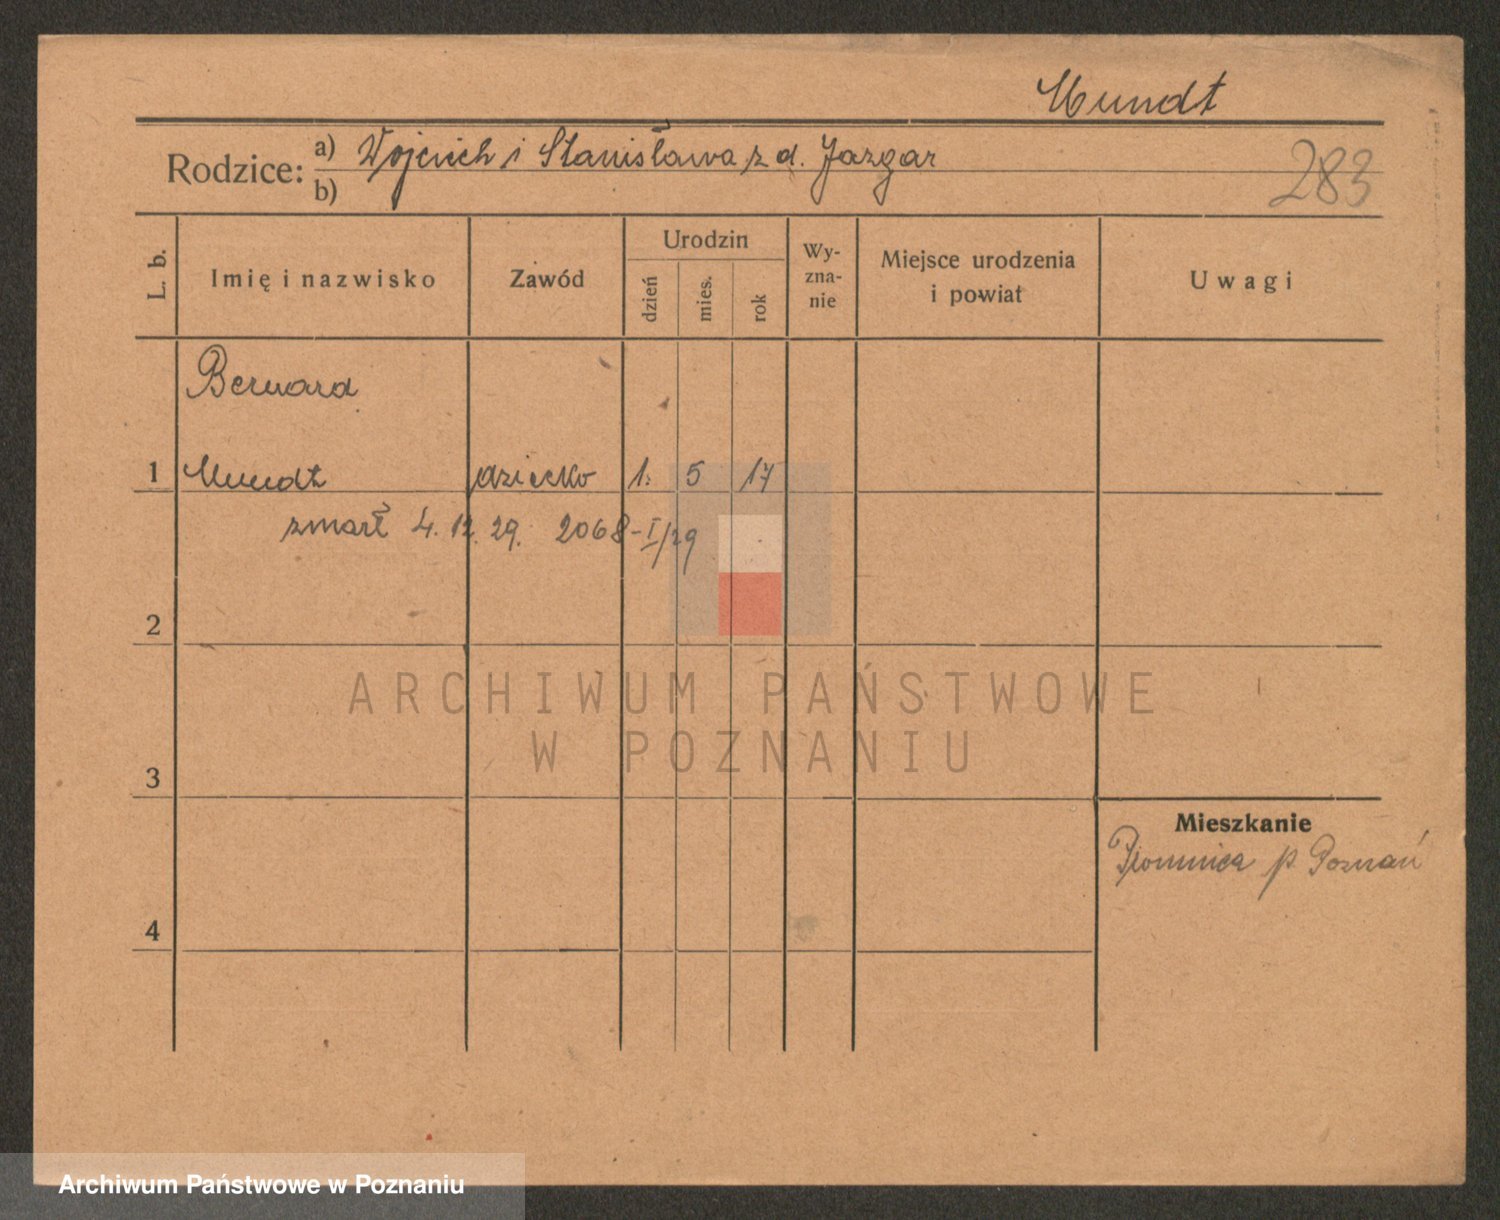 Mundt
Rodzice: a) Wojciech i Stanisława z d. Jazgar
b)
283
L. b.
Imię i nazwisko
Zawód
Urodzin
dzień
mies.
rok
Wy-
zna-
nie
Miejsce urodzenia
i powiat
Uwagi
Bernard
1 Mundt dziecko 1. 5 17
zmarł 4. 12. 29. 2068-I/29
2
ARCHIWUM PAŃSTWOWE
W POZNANIU
3
Mieszkanie
p. Poznań
4
Archiwum Państwowe w Poznaniu